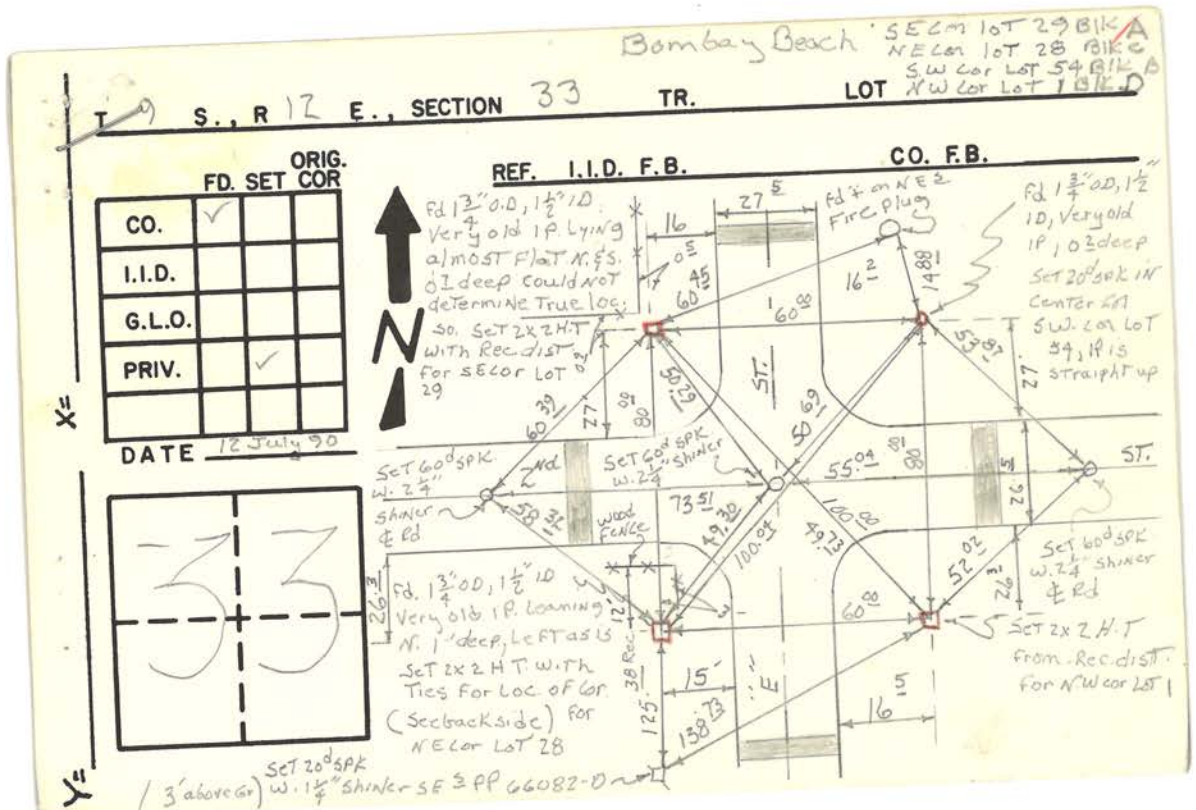 Bombay Beach
SECor lot 29 Blk A
NECor lot 28 Blk C
S.W Cor Lot 54 Blk B
NW Cor Lot 1 Blk.D
T 9 S., R 12 E., SECTION 33 TR. LOT
REF. I.I.D. F.B. CO. F.B.
FD. SET ORIG. COR
CO. ✓
I.I.D.
G.L.O.
PRIV. ✓
DATE 12 July 90
X=
Y=
33
N
Fd 1 3/4" O.D, 1 1/2" I.D.
Very old I.P. Lying
almost Flat N.&S.
could not
determine True Loc.
So. Set 2x2 H.T
with Rec. dist
For SECor Lot
29
16
27 5
0 5
60 45
Fd + on NE
Fire plug
16 2
14 88
60 00
Fd 1 3/4" O.D, 1 1/2"
ID, Very old
IP, 0 2 deep
Set 20d spk in
Center for
S.W. Cor Lot
54, IP is
straight up
53 87
27
27
80 00
50 29
ST.
50 69
80 00
60 39
2nd
Set 60d SPK
W. 2 1/4" Shiner
55.04
26 5
ST.
Set 60d SPK.
W. 2 1/4"
Shiner
℄ Rd
73 51
58 31
49.30
100.04
100.00
49.73
52 02
Set 60d SPK
W. 2 1/4" Shiner
℄ Rd
wood
Fence
26.3
Fd. 1 3/4" O.D, 1 1/2" ID
Very old I.P. Leaning
N. 1" deep, Left as is
Set 2x2 H.T. with
Ties For Loc. of Cor.
(See backside) For
NECor Lot 28
60 00
Set 2x2 H.T
From Rec. dist.
For NW Cor Lot 1
125.38 Rec.
15'
138.73
"E"
16 5
Set 20d SPK
(3' above Gr) W. 1 1/4" Shiner SE PP 66082-D